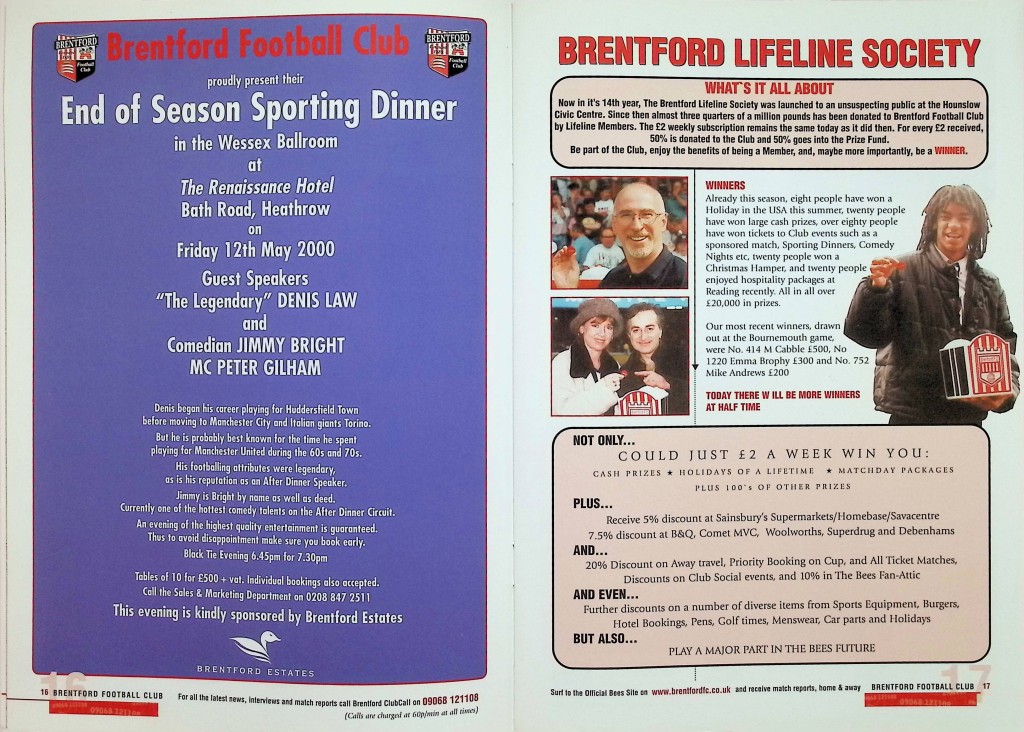 BRENTFORD
Football
Club
Brentford Football Club
BRENTFORD
Football
Club
proudly present their
End of Season Sporting Dinner
in the Wessex Ballroom
at
The Renaissance Hotel
Bath Road, Heathrow
on
Friday 12th May 2000
Guest Speakers
"The Legendary" DENIS LAW
and
Comedian JIMMY BRIGHT
MC PETER GILHAM
Denis began his career playing for Huddersfield Town
before moving to Manchester City and Italian giants Torino.
But he is probably best known for the time he spent
playing for Manchester United during the 60s and 70s.
His footballing attributes were legendary,
as is his reputation as an After Dinner Speaker.
Jimmy is Bright by name as well as deed.
Currently one of the hottest comedy talents on the After Dinner Circuit.
An evening of the highest quality entertainment is guaranteed.
Thus to avoid disappointment make sure you book early.
Black Tie Evening 6.45pm for 7.30pm
Tables of 10 for £500 + vat. Individual bookings also accepted.
Call the Sales & Marketing Department on 0208 847 2511
This evening is kindly sponsored by Brentford Estates
BRENTFORD ESTATES
16
16 BRENTFORD FOOTBALL CLUB
For all the latest news, interviews and match reports call Brentford ClubCall on 09068 121108
(Calls are charged at 60p/min at all times)
BRENTFORD LIFELINE SOCIETY
WHAT`S IT ALL ABOUT
Now in it's 14th year, The Brentford Lifeline Society was launched to an unsuspecting public at the Hounslow
Civic Centre. Since then almost three quarters of a million pounds has been donated to Brentford Football Club
by Lifeline Members. The £2 weekly subscription remains the same today as it did then. For every £2 received,
50% is donated to the Club and 50% goes into the Prize Fund.
Be part of the Club, enjoy the benefits of being a Member, and, maybe more importantly, be a WINNER.
WINNERS
Already this season, eight people have won a
Holiday in the USA this summer, twenty people
have won large cash prizes, over eighty people
have won tickets to Club events such as a
sponsored match, Sporting Dinners, Comedy
Nights etc, twenty people won a
Christmas Hamper, and twenty people
enjoyed hospitality packages at
Reading recently. All in all over
£20,000 in prizes.
Our most recent winners, drawn
out at the Bournemouth game,
were No. 414 M Cabble £500, No
1220 Emma Brophy £300 and No. 752
Mike Andrews £200
TODAY THERE W ILL BE MORE WINNERS
AT HALF TIME
NOT ONLY...
COULD JUST £2 A WEEK WIN YOU:
CASH PRIZES ★ HOLIDAYS OF A LIFETIME ★ MATCHDAY PACKAGES
PLUS 100's OF OTHER PRIZES
PLUS...
Receive 5% discount at Sainsbury's Supermarkets/Homebase/Savacentre
7.5% discount at B&Q, Comet MVC, Woolworths, Superdrug and Debenhams
AND...
20% Discount on Away travel, Priority Booking on Cup, and All Ticket Matches,
Discounts on Club Social events, and 10% in The Bees Fan-Attic
AND EVEN...
Further discounts on a number of diverse items from Sports Equipment, Burgers,
Hotel Bookings, Pens, Golf times, Menswear, Car parts and Holidays
BUT ALSO...
PLAY A MAJOR PART IN THE BEES FUTURE
17
Surf to the Official Bees Site on www.brentfordfc.co.uk and receive match reports, home & away
BRENTFORD FOOTBALL CLUB 17